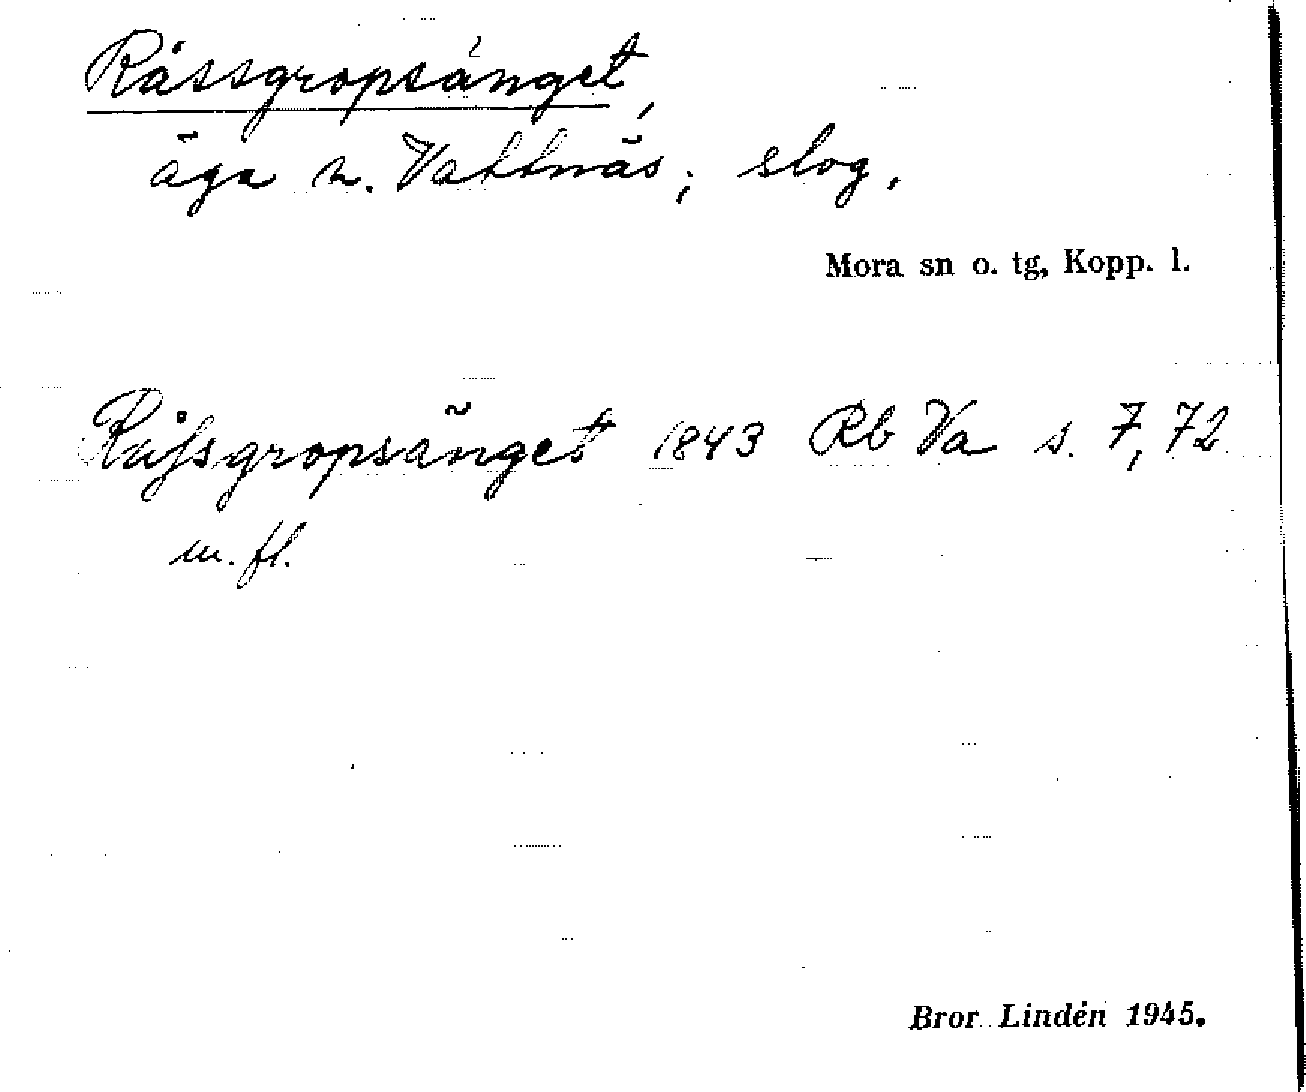 Råssgropsänget,
äga n. Vattnäs; slog.
Mora sn o. tg, Kopp. l.
Råssgropsänget 1843 Rb Va s. 7, 72
m. fl.
Bror Lindén 1945.